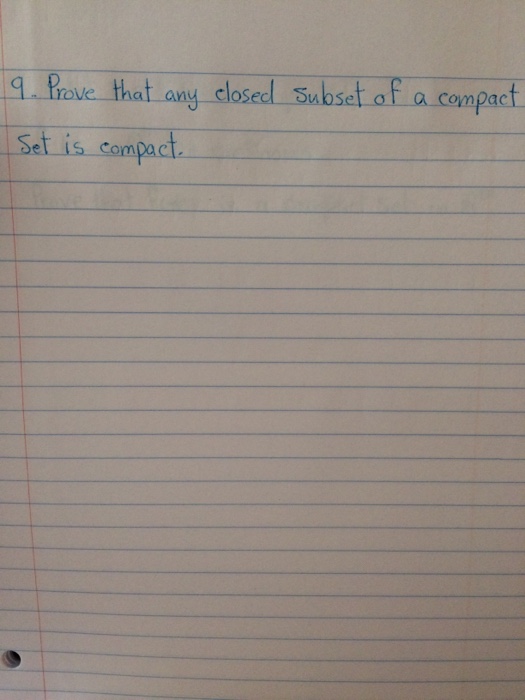 9. Prove that any closed subset of a compact
Set is compact.